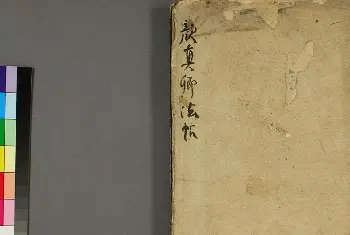 顔真卿法帖